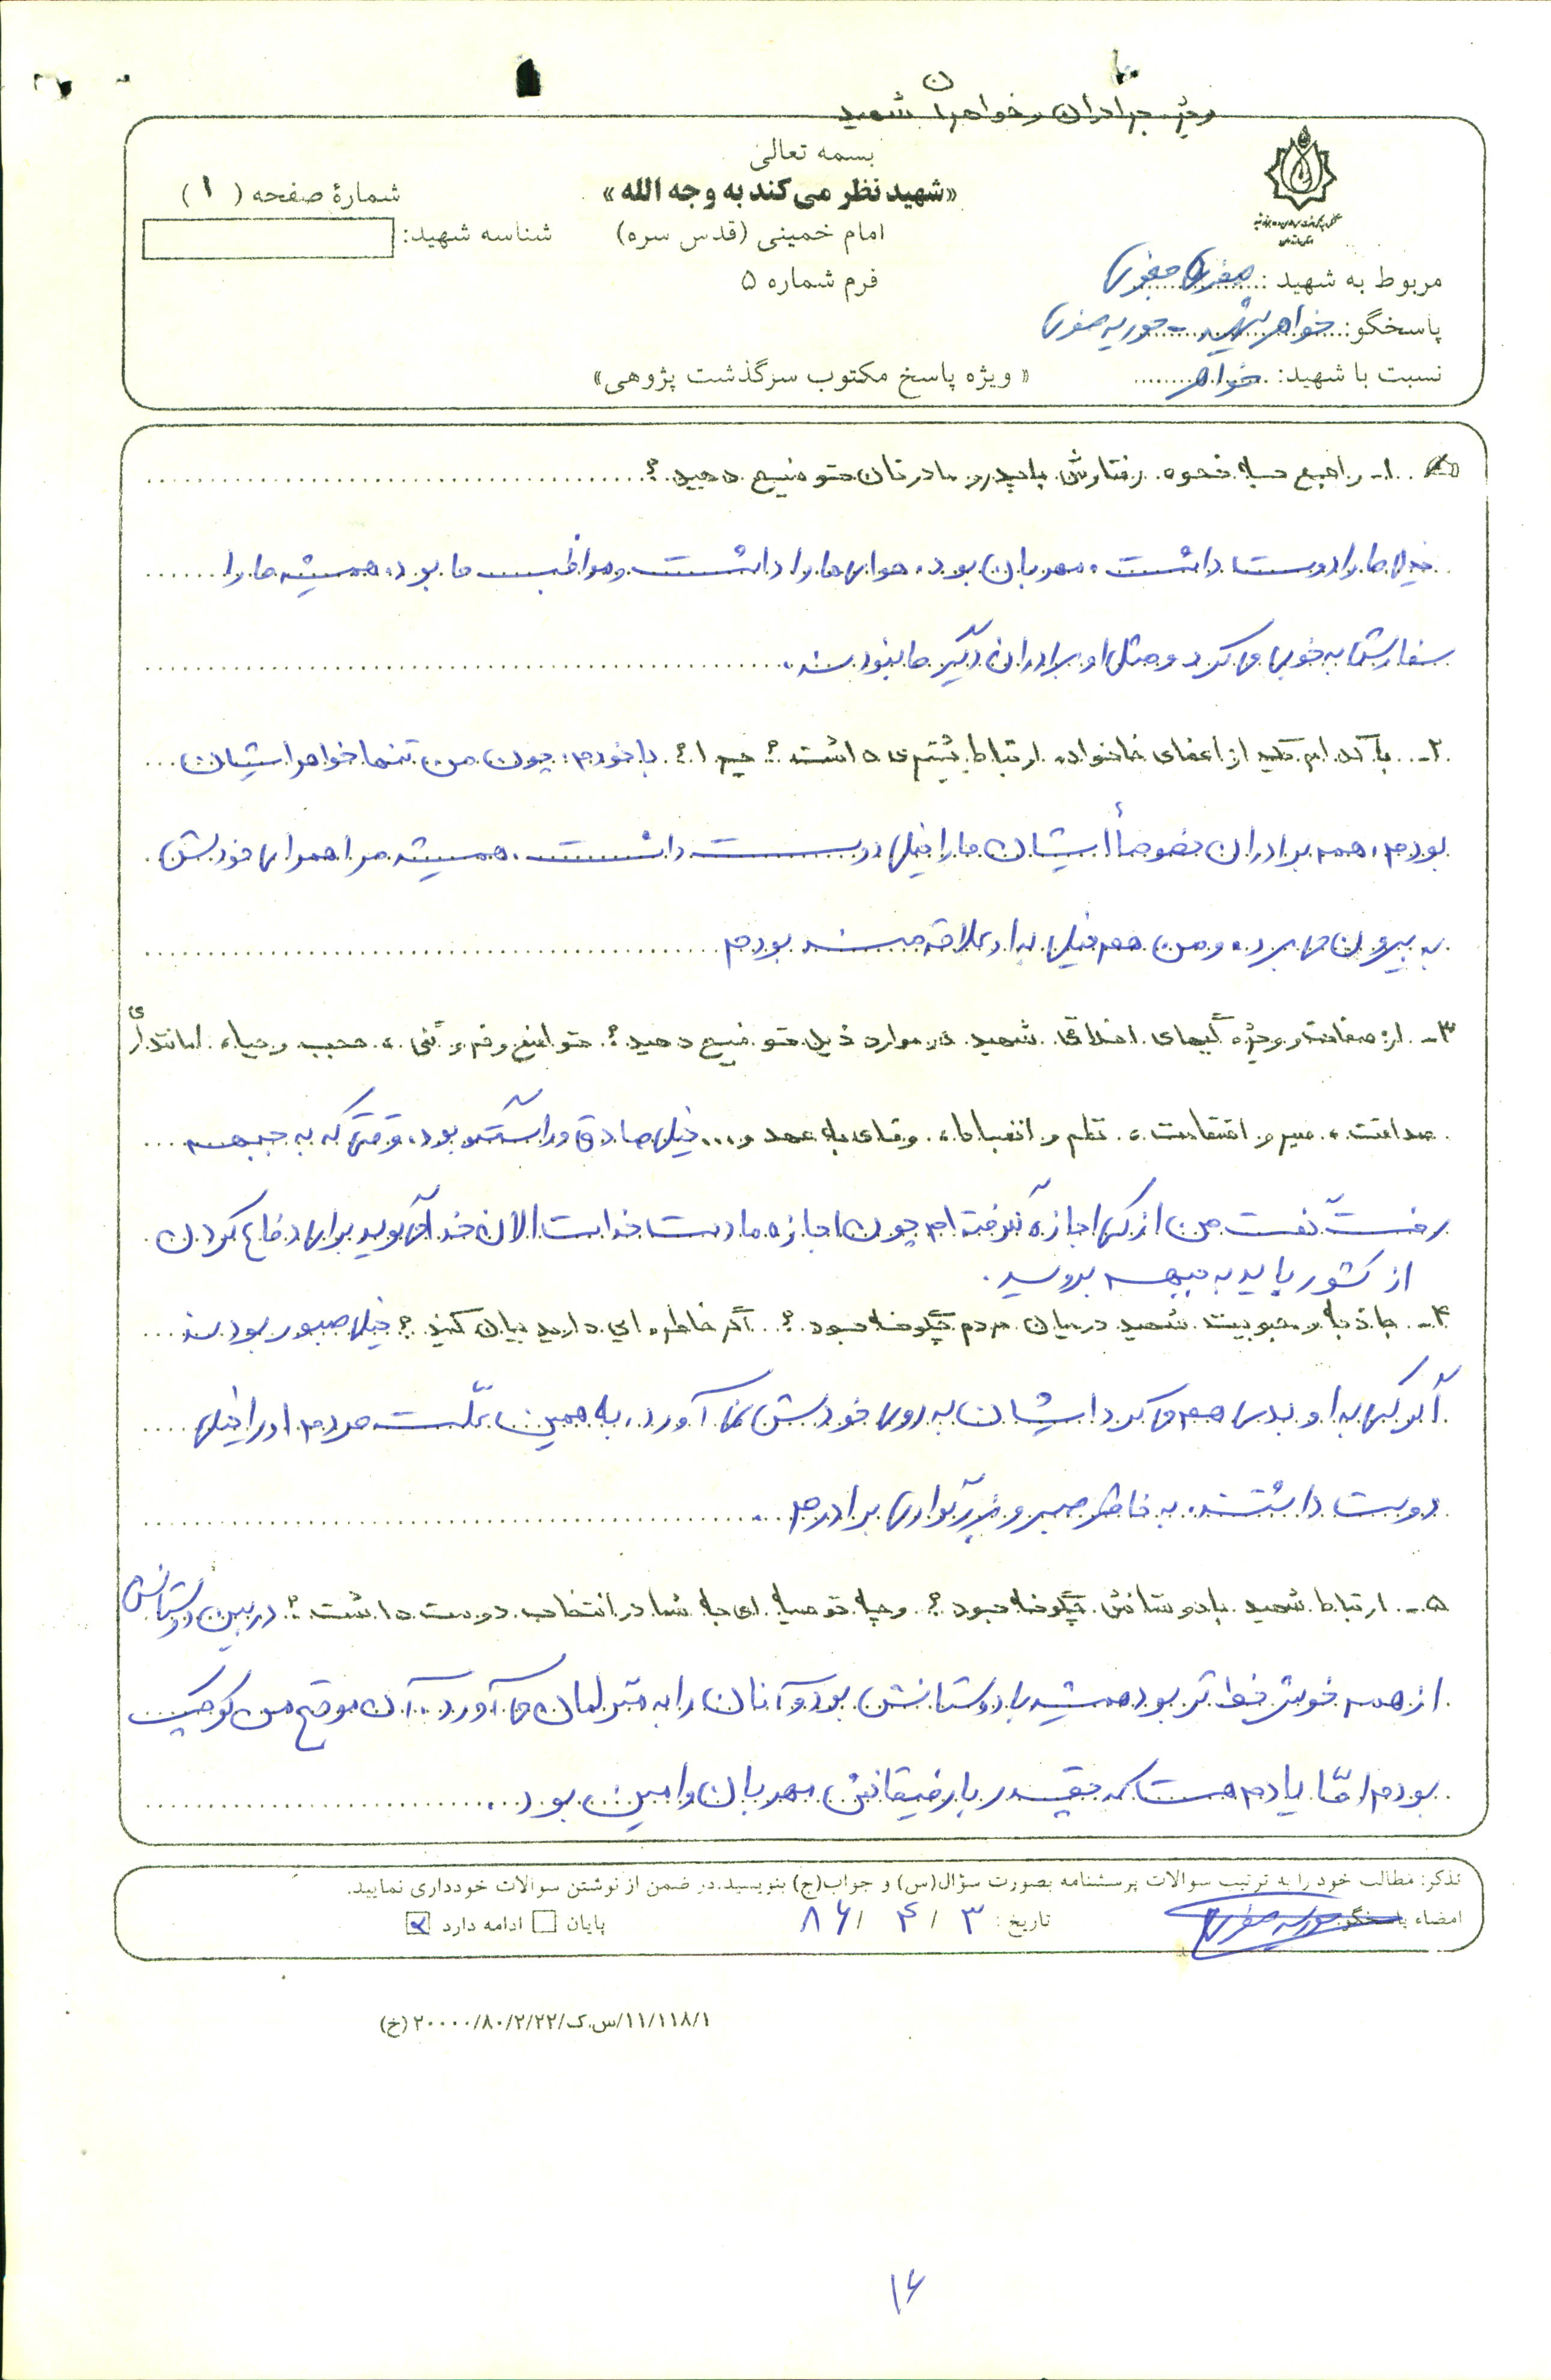 ویژه برادران و خواهران شهید
بسمه تعالی
«شهید نظر می‌کند به وجه الله»
شمارهٔ صفحه ( ۱ )
امام خمینی (قدس سره)
شناسه شهید:
فرم شماره ۵
مربوط به شهید :
پاسخگو: خواهر شهید - حوریه صفری
نسبت با شهید: خواهر
« ویژه پاسخ مکتوب سرگذشت پژوهی»
۱- راجع به نحوه رفتارش با پدر و مادرتان توضیح دهید ؟
خیلی ما را دوست داشت، مهربان بود، هوای ما را داشت و مواظب ما بود، همیشه ما را
سفارش به خوبی می کرد و مثل او برادران دیگر ما نبودند.
۲- با کدام یک از اعضای خانواده ارتباط بیشتری داشت ؟ چرا ؟ با خودم، چون من تنها خواهر ایشان
بودم، همه برادران خصوصاً ایشان ما را خیلی دوست داشت، همیشه مرا همراه خودش
به بیرون می برد، و من هم خیلی به او علاقه مند بودم
۳- از صفات و ویژه گیهای اخلاقی شهید در موارد ذیل توضیح دهید ؟ تواضع و فروتنی ، حجب و حیا، امانتداری
صداقت ، صبر و استقامت ، نظم و انضباط ، وفای به عهد و ... خیلی صادق و راستگو بود، وقتی که به جبهه
رفت گفت من از کسی اجازه نگرفته ام چون اجازه ما دست خداست الان خدا می گوید برای دفاع کردن
از کشور باید به جبهه بروید.
۴- جاذبه و محبوبیت شهید در میان مردم چگونه بود ؟ اگر خاطره ای دارید بیان کنید ؟ خیلی صبور بودند
اگر کسی به او بدی هم می کرد ایشان به روی خودش نمی آورد، به همین علّت مردم او را خیلی
دوست داشتند، به خاطر صبر و بزرگواری برادرم.
۵- ارتباط شهید با دوستانش چگونه بود ؟ و چه توصیه ای به شما در انتخاب دوست داشت ؟ در بین دوستانش
از همه خوش تر بود همیشه با دوستانش بود و آنان را به منزلمان می آورد، آن موقع من کوچک
بودم امّا یادم هست که چقدر با رفیقانش مهربان و امین بود.
تذکر: مطالب خود را به ترتیب سوالات پرسشنامه بصورت سؤال(س) و جواب(ج) بنویسید.در ضمن از نوشتن سوالات خودداری نمایید.
امضاء پاسخگو:
تاریخ : ۳ / ۴ / ۸۶
پایان
ادامه دارد
۱۱/۱۱۸/۱/س.ک/۲۰۰۰۰/۸۰/۲/۲۲ (خ)
۱۶